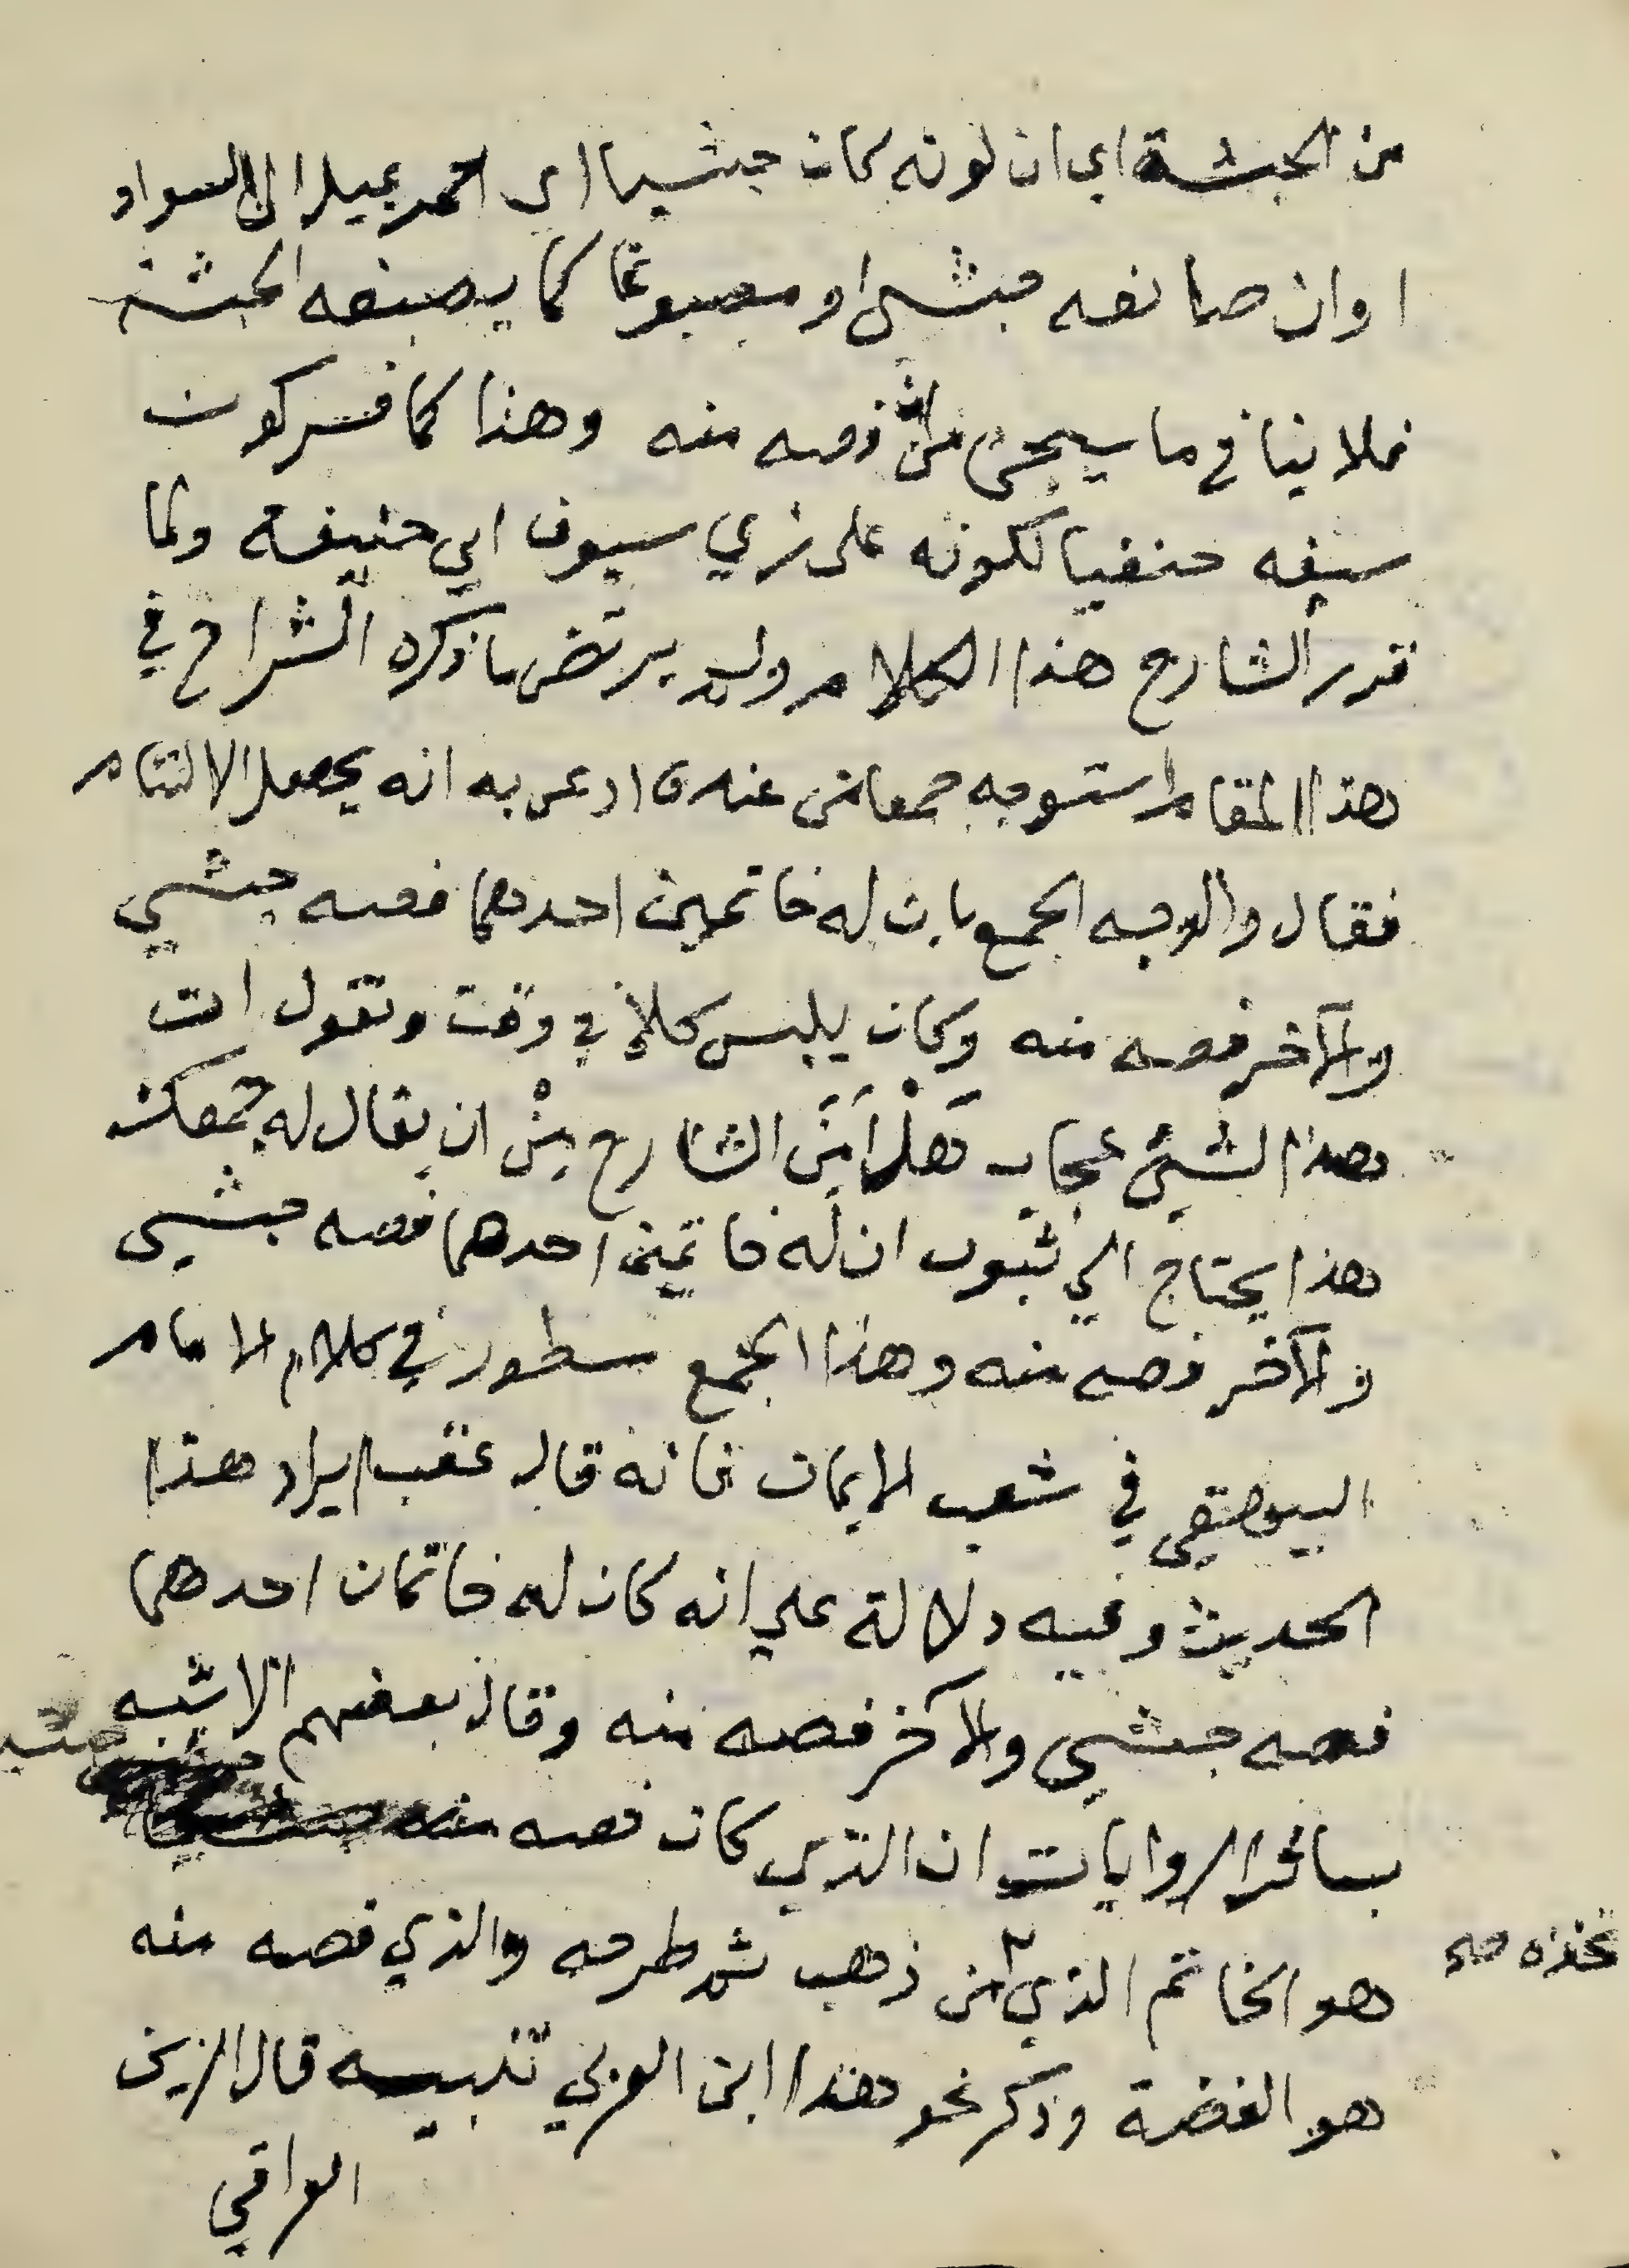 من الحبشة اي ان لونه كان حبشيا اى احمر يميل الى السواد
او ان صانعه حبشي او مصبوغا كما يصبغه الحبشة
فلا ينافي ما سيجئ من ان فصه منه وهذا كما فسر كون
سيفه حنفيا لكونه على زي سيوف ابي حنيفة ولما
قرر الشارح هذا الكلام ولم يرتض ما ذكره الشراح في
هذا المقام استوجه جمعا من عنده ادعى به انه يحصل الالتئام
فقال والوجه الجمع بان له خاتمين احدهما فصه حبشي
والآخر فصه منه وكان يلبس كلا في وقت ونقول ان
هذا لشيئ عجاب هل أمن الشارح من ان يقال له جمعك
هذا يحتاج الي ثبوت ان له خاتمين احدهما فصه حبشي
والآخر فصه منه وهذا الجمع مسطور في كلام الامام
البيهقي في شعب الايمان فانه قال عقب ايراد هذا
الحديث وفيه دلالة علي انه كان له خاتمان احدهما
فصه حبشي والآخر فصه منه وقال بعضهم الاشبه
بسائر الروايات ان الذي كان فصه حبشيا
هو الخاتم الذي اتخذه من ذهب ثم طرحه والذي فصه منه
هو الفضة وذكر نحو هذا ابن العربي تنبيه قال الزين
العراقي